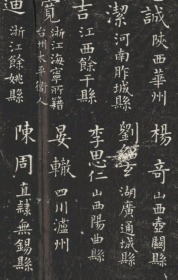 誠 陝西華州
潔 河南胙城縣
吉 江西餘干縣
寬 浙江海寧所籍
台州太平人
迪 浙江餘姚縣
楊奇 山西壺關縣
劉 湖廣通城縣
李思仁 山西陽曲縣
晏轍 四川瀘州
陳周 直隸無錫縣